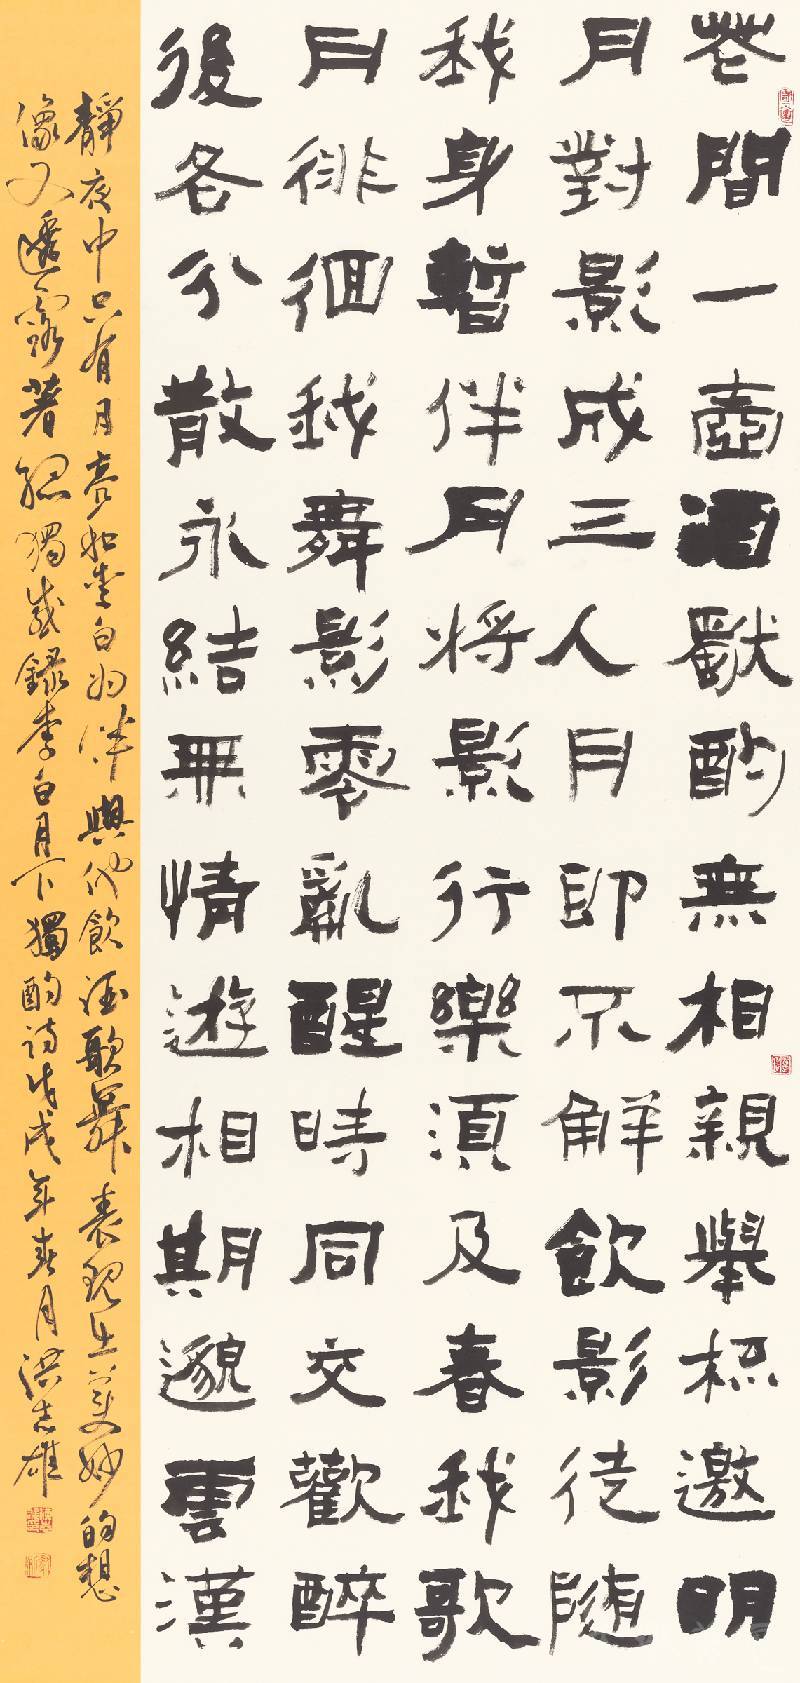 花間一壺酒獨酌無相親舉杯邀明
月對影成三人月即不解飲影徒随
我身暫伴月將影行樂須及春我歌
月徘徊我舞影零亂醒時同交歡醉
後各分散永結無情遊相期邈雲漢
靜夜中只有月亮和李白为伴與他飲酒歌舞表現出美妙的想
像又透露著孤獨感錄李白月下獨酌詩戊戌年春月洪志雄